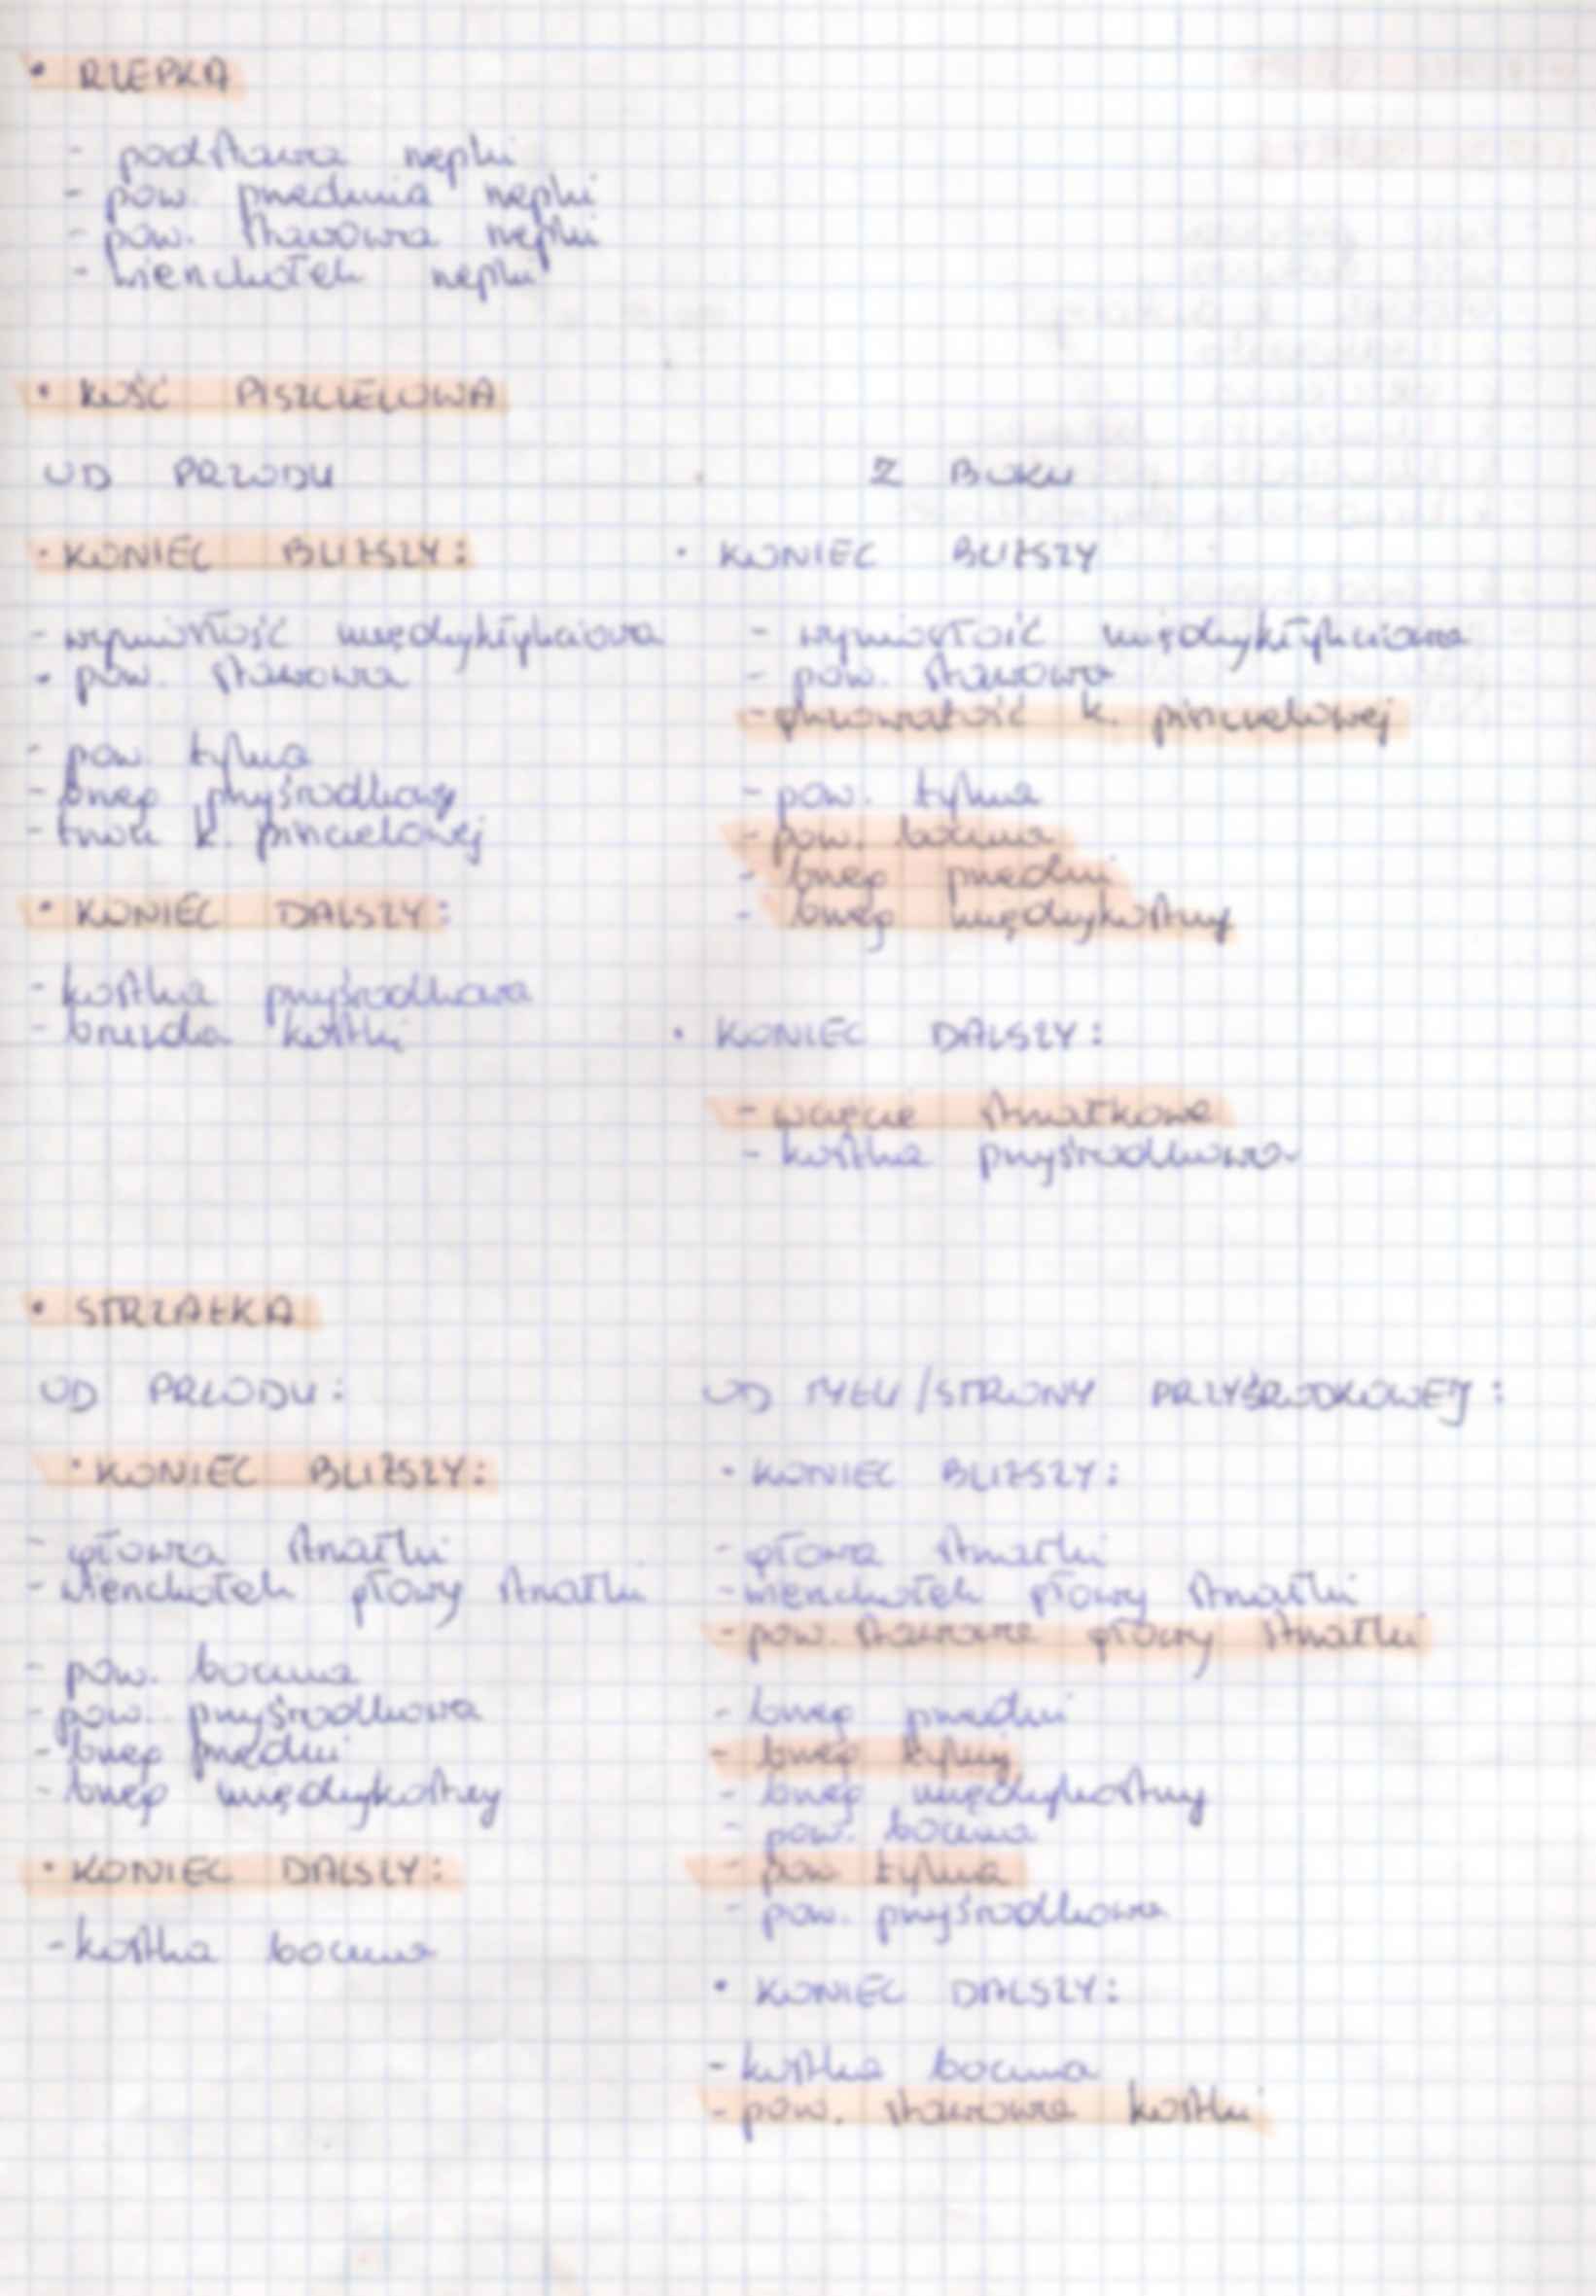 • RZEPKA
- podstawa rzepki
- pow. przednia rzepki
- pow. stawowa rzepki
- wierzchołek rzepki
• KOŚĆ PISZCZELOWA
OD PRZODU
• KONIEC BLIŻSZY:
- wyniosłość międzykłykciowa
- pow. stawowa
- pow. tylna
- brzeg przyśrodkowy
- trzon k. piszczelowej
• KONIEC DALSZY:
- kostka przyśrodkowa
- bruzda kostki
Z BOKU
• KONIEC BLIŻSZY
- wyniosłość międzykłykciowa
- pow. stawowa
- guzowatość k. piszczelowej
- pow. tylna
- pow. boczna
- brzeg przedni
- brzeg międzykostny
• KONIEC DALSZY:
- wcięcie strzałkowe
- kostka przyśrodkowa
• STRZAŁKA
OD PRZODU:
• KONIEC BLIŻSZY:
- głowa strzałki
- wierzchołek głowy strzałki
- pow. boczna
- pow. przyśrodkowa
- brzeg przedni
- brzeg międzykostny
• KONIEC DALSZY:
- kostka boczna
OD TYŁU/STRONY PRZYŚRODKOWEJ:
• KONIEC BLIŻSZY:
- głowa strzałki
- wierzchołek głowy strzałki
- pow. stawowa głowy strzałki
- brzeg przedni
- brzeg tylny
- brzeg międzykostny
- pow. boczna
- pow tylna
- pow. przyśrodkowa
• KONIEC DALSZY:
- kostka boczna
- pow. stawowa kostki